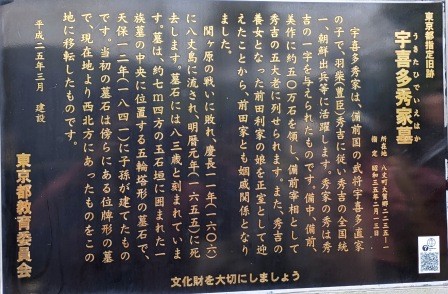 東京都指定旧跡
うきたひでいえはか
宇喜多秀家墓
所在地 八丈町大賀郷二二三五―一
指定 昭和三五年二月一三日
宇喜多秀家は、備前国の武将宇喜多直家
の子で、羽柴(豊臣)秀吉に従い秀吉の全国統
一、朝鮮出兵等に活躍します。秀家の秀は秀
吉の一字を与えられたものです。備中、備前、
美作に約五〇万石を領し、備前宰相として
秀吉の五大老に列せられます。また、秀吉の
養女となった前田利家の娘を正室として迎
えたことから、前田家とも姻戚関係となり
ました。
関ヶ原の戦いに敗れ、慶長一一年(一六〇六)
に八丈島に流され、明暦元年(一六五五)に死
去します。墓石には八三歳と刻まれていま
す。墓は、約七m四方の玉石垣に囲まれた一
族墓の中央に位置する五輪塔形の墓石で、
天保一二年(一八四一)に子孫が建てたもの
です。当初の墓石は傍らにある位牌形の墓
で、現在地より西北方にあったものをこの
地に移転したものです。
平成二五年三月 建設
東京都教育委員会
文化財を大切にしましょう